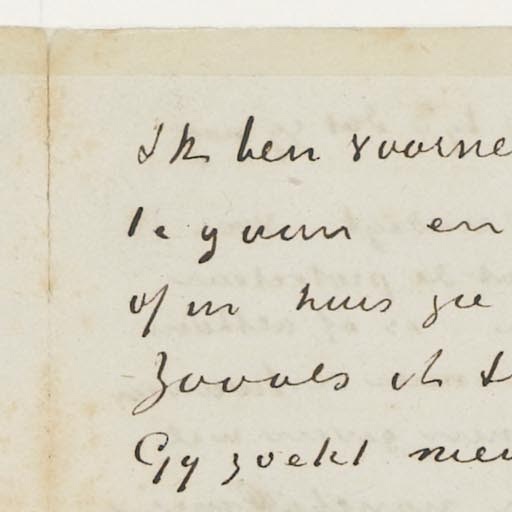 Ik ben voorne
te gaan en
of in huis zie
Zooals ik
Gy zoekt